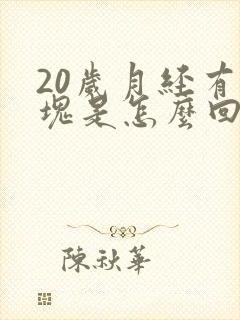 20歲月経有
塊是怎麼回
陳秋華